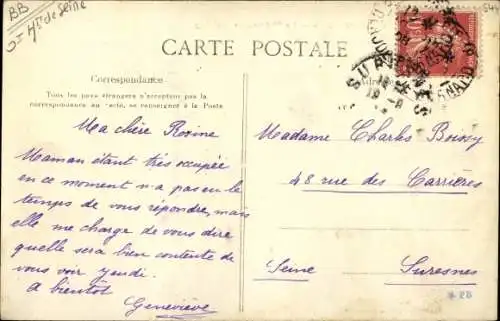 BB
Hts de Seine
CARTE POSTALE
Correspondance
Tous les pays étrangers n'acceptent pas la
correspondance au recto, se renseigner à la Poste
Ma chère Rosine
Maman étant très occupée
en ce moment n'a pas eu le
temps de vous répondre, mais
elle me charge de vous dire
quelle sera bien contente de
vous voir jeudi.
A bientôt
Geneviève
SURESNES
Madame Charles Boissy
48 rue des Carrières
Seine Suresnes